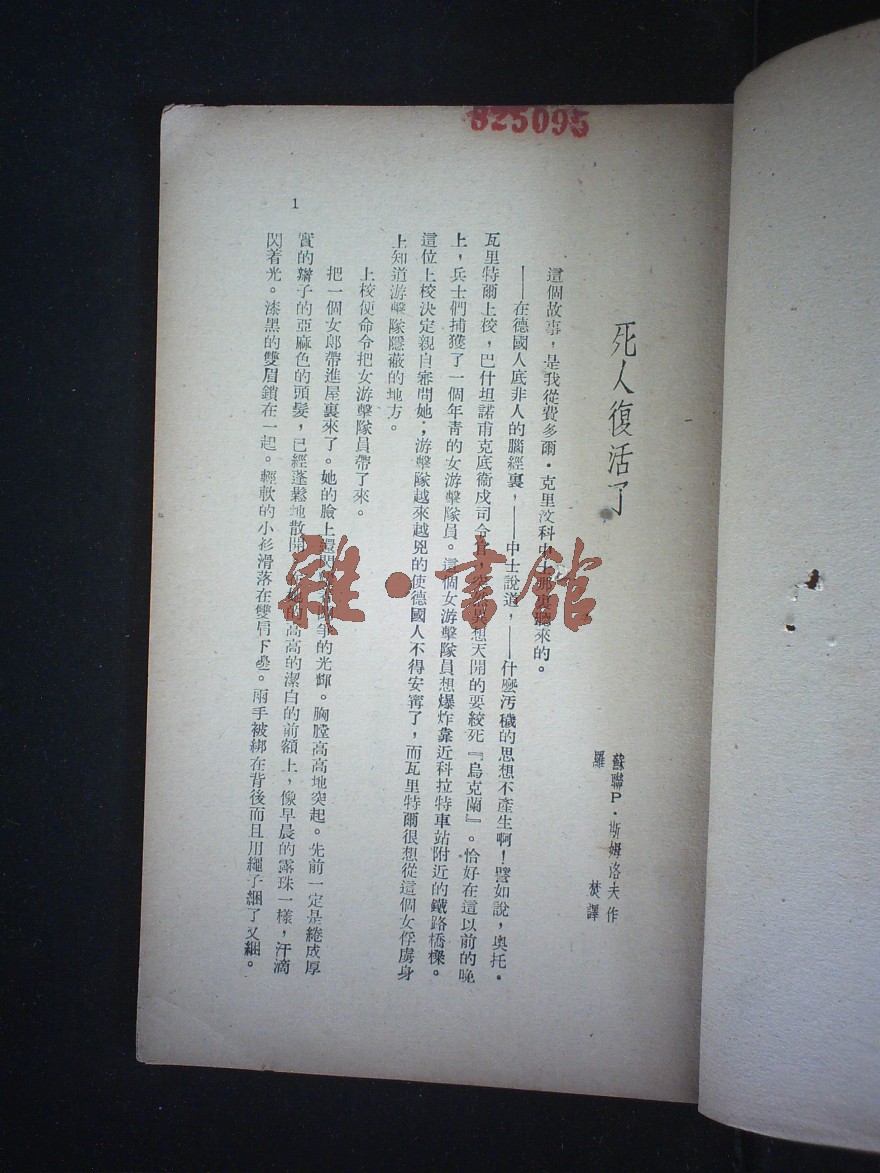 825095
死人復活了
蘇聯P·斯姆洛夫作
羅 焚譯
這個故事，是我從費多爾·克里汶科中士那裏聽來的。
——在德國人底非人的腦經裏，——中士說道，——什麼汚穢的思想不產生啊！譬如說，奧托·
瓦里特爾上校，巴什坦諾甫克底衞戍司令官，想天開的要絞死『烏克蘭』。恰好在這以前的晚
上，兵士們捕獲了一個年靑的女游擊隊員。這個女游擊隊員想爆炸靠近科拉特車站附近的鐵路橋樑。
這位上校決定親自審問她；游擊隊越來越兇的使德國人不得安寗了，而瓦里特爾很想從這個女俘虜身
上知道游擊隊隱蔽的地方。
上校便命令把女游擊隊員帶了來。
把一個女郎帶進屋裏來了。她的臉上還閃爭的光輝。胸膛高高地突起。先前一定是綣成厚
實的辮子的亞麻色的頭髮，已經蓬鬆地散開的高高的潔白的前額上，像早晨的露珠一樣，汗滴
閃着光。漆黑的雙眉鎖在一起。輕軟的小衫滑落在雙肩下邊。兩手被綁在背後而且用繩子綑了又綑。
1
雜·書館